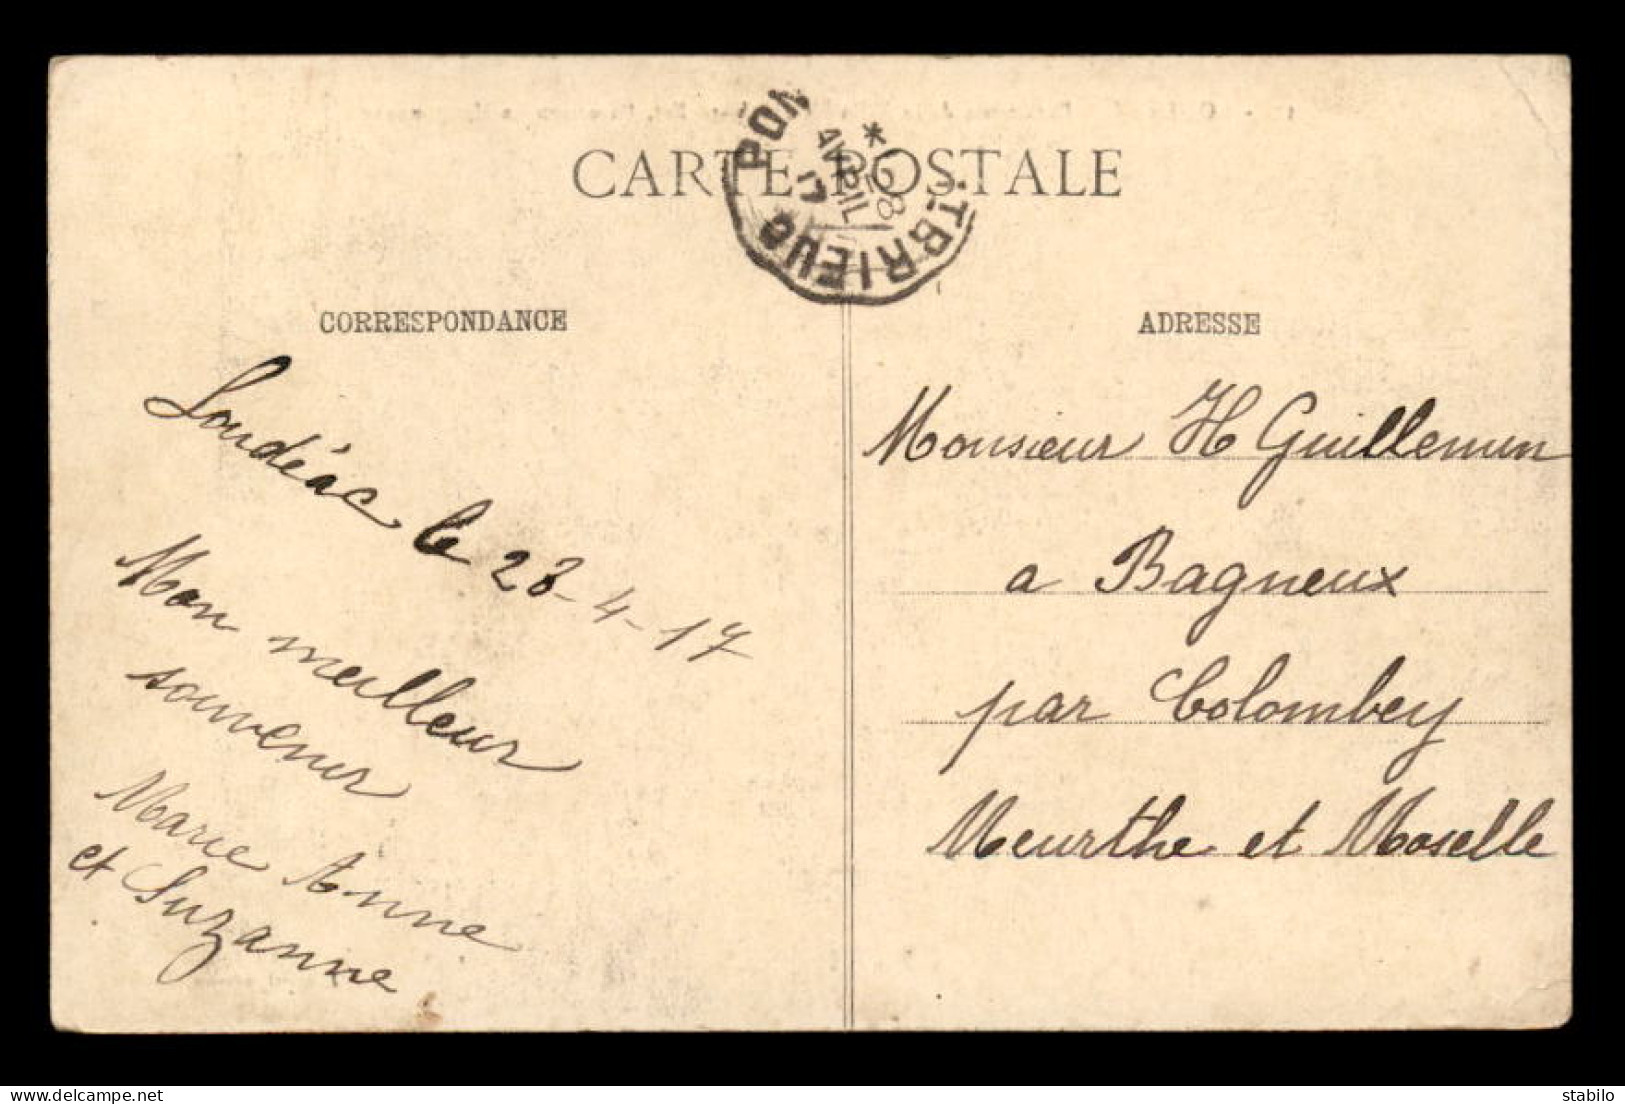 CARTE POSTALE
PON
ST BRIEUC
*
28
AVRIL
17
CORRESPONDANCE
ADRESSE
Loudéac le 28-4-17
Mon meilleur
souvenir
Marie Anne
et Suzanne
Monsieur H Guillemin
a Bagneux
par Colombey
Meurthe et Moselle
delcampe.net
stabilo